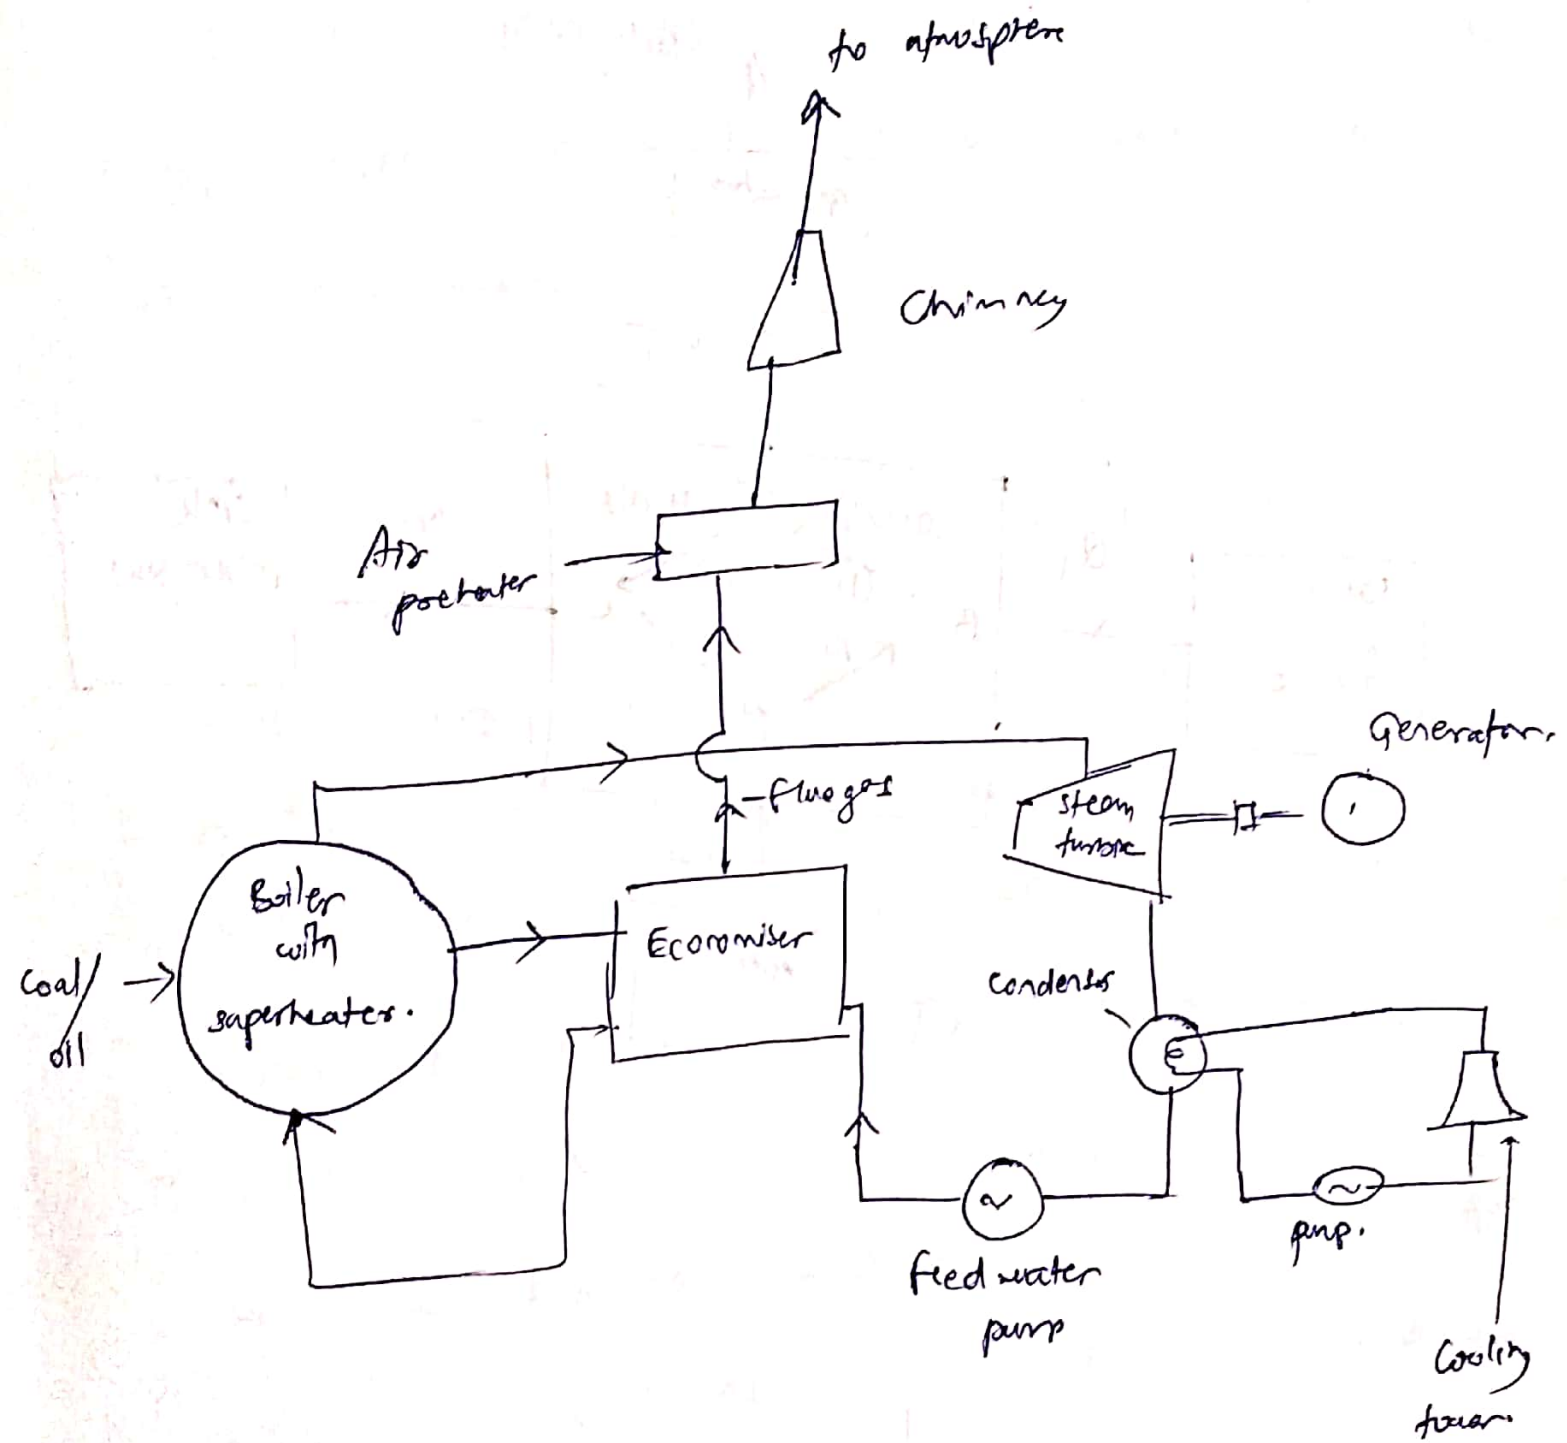 to atmosphere
Chimney
Air
preheater
Generator.
flue gas
steam
turbine
Boiler
with
superheater.
Economiser
Coal/
oil
Condensor
pump.
feed water
pump
Cooling
tower.